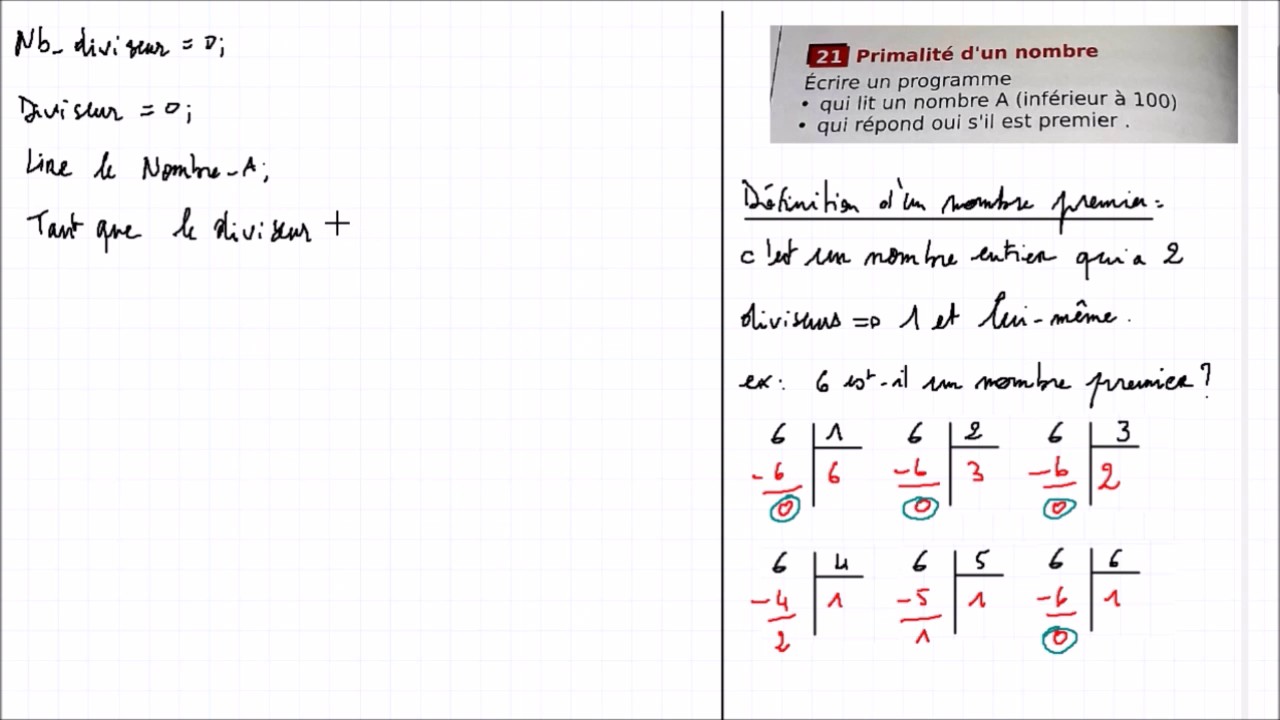 Nb_diviseur = 0;
Diviseur = 0;
Lire le Nombre_A;
Tant que le diviseur +
21 Primalité d'un nombre
Écrire un programme
• qui lit un nombre A (inférieur à 100)
• qui répond oui s'il est premier .
Définition d'un nombre premier :
c'est un nombre entier qui a 2
diviseurs => 1 et lui-même.
ex: 6 est-il un nombre premier ?
6 1 6 2 6 3
-6 6 -6 3 -6 2
0 0 0
6 4 6 5 6 6
-4 1 -5 1 -6 1
2 1 0